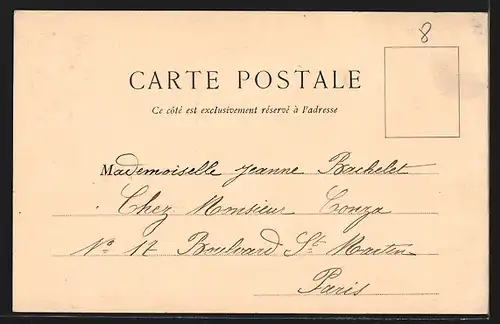 8
CARTE POSTALE
Ce côté est exclusivement réservé à l'adresse
Mademoiselle Jeanne Bachelet
Chez Monsieur
No 12 Boulevard St. Martin
Paris